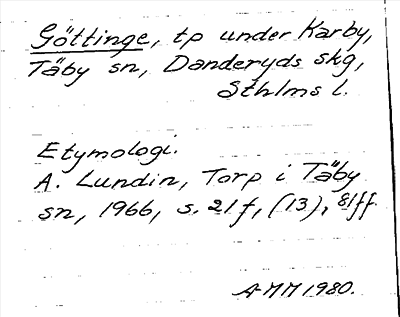 Göttinge, tp under Karby,
Täby sn, Danderyds skg,
Sthlms l.
Etymologi.
A. Lundin, Torp i Täby
sn, 1966, s. 21f, (13), 81ff.
AMM 1980.